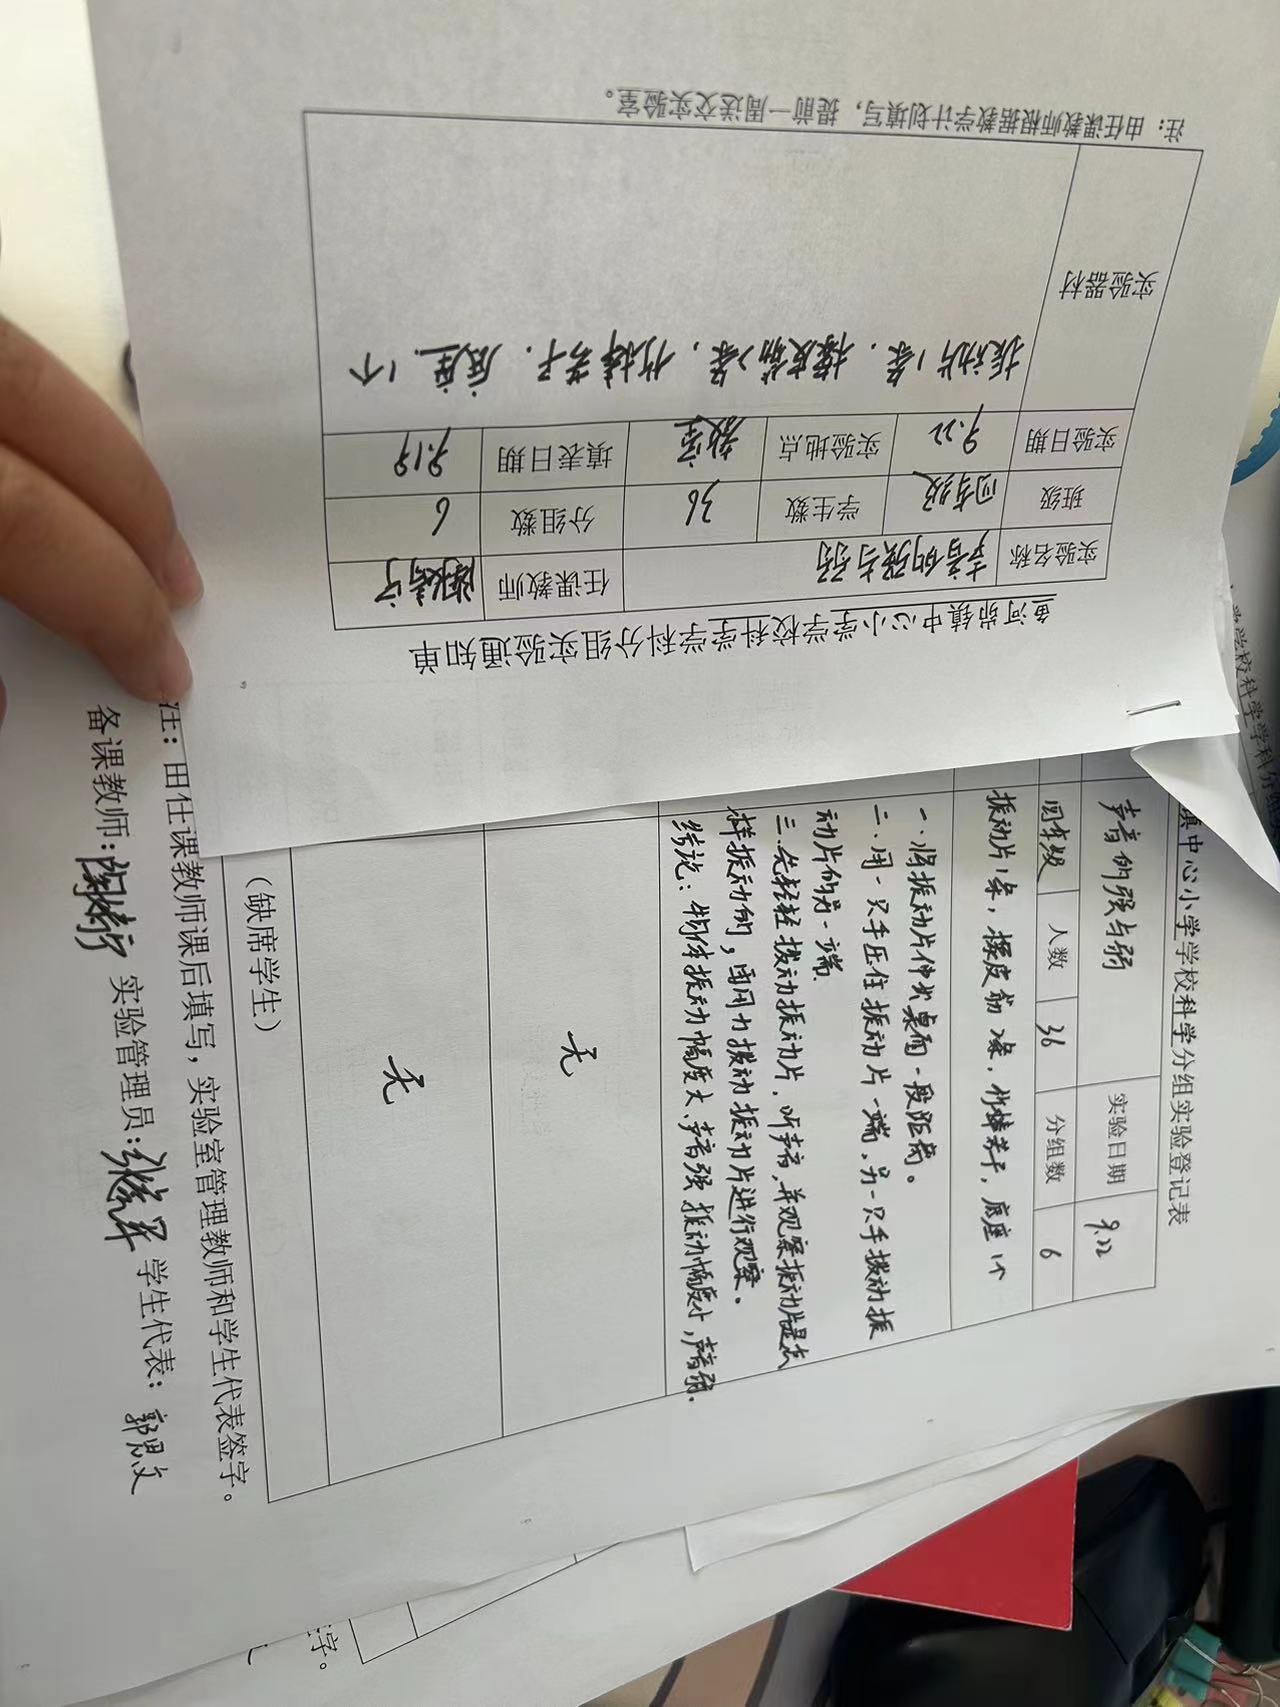 鱼河峁镇中心小学学校科学学科分组实验通知单
实验名称 声音的强与弱 任课教师
班级 四年级 学生数 36 分组数 6
实验日期 9.22 实验地点 教室 填表日期 9.19
实验器材 振动片1条．橡皮筋2条．竹棒若干．底座1个
注：由任课教师根据教学计划填写，提前一周送交实验室。
镇中心小学学校科学分组实验登记表
声音的强与弱 实验日期 9.22
四年级 人数 36 分组数 6
振动片1条，橡皮筋2条，竹棒若干，底座1个
一．将振动片伸出桌面一段距离。
二．用一只手压住振动片一端，另一只手拨动振
动片的另一端．
三．先轻轻拨动振动片，听声音，并观察振动片是怎
样振动的，再用力拨动振动片进行观察。
结论：物体振动幅度大，声音强 振动幅度小，声音弱．
无
无
（缺席学生）
注：由任课教师课后填写，实验室管理教师和学生代表签字。
备课教师： 实验管理员： 学生代表：郭思文
学校科学学科分
字。